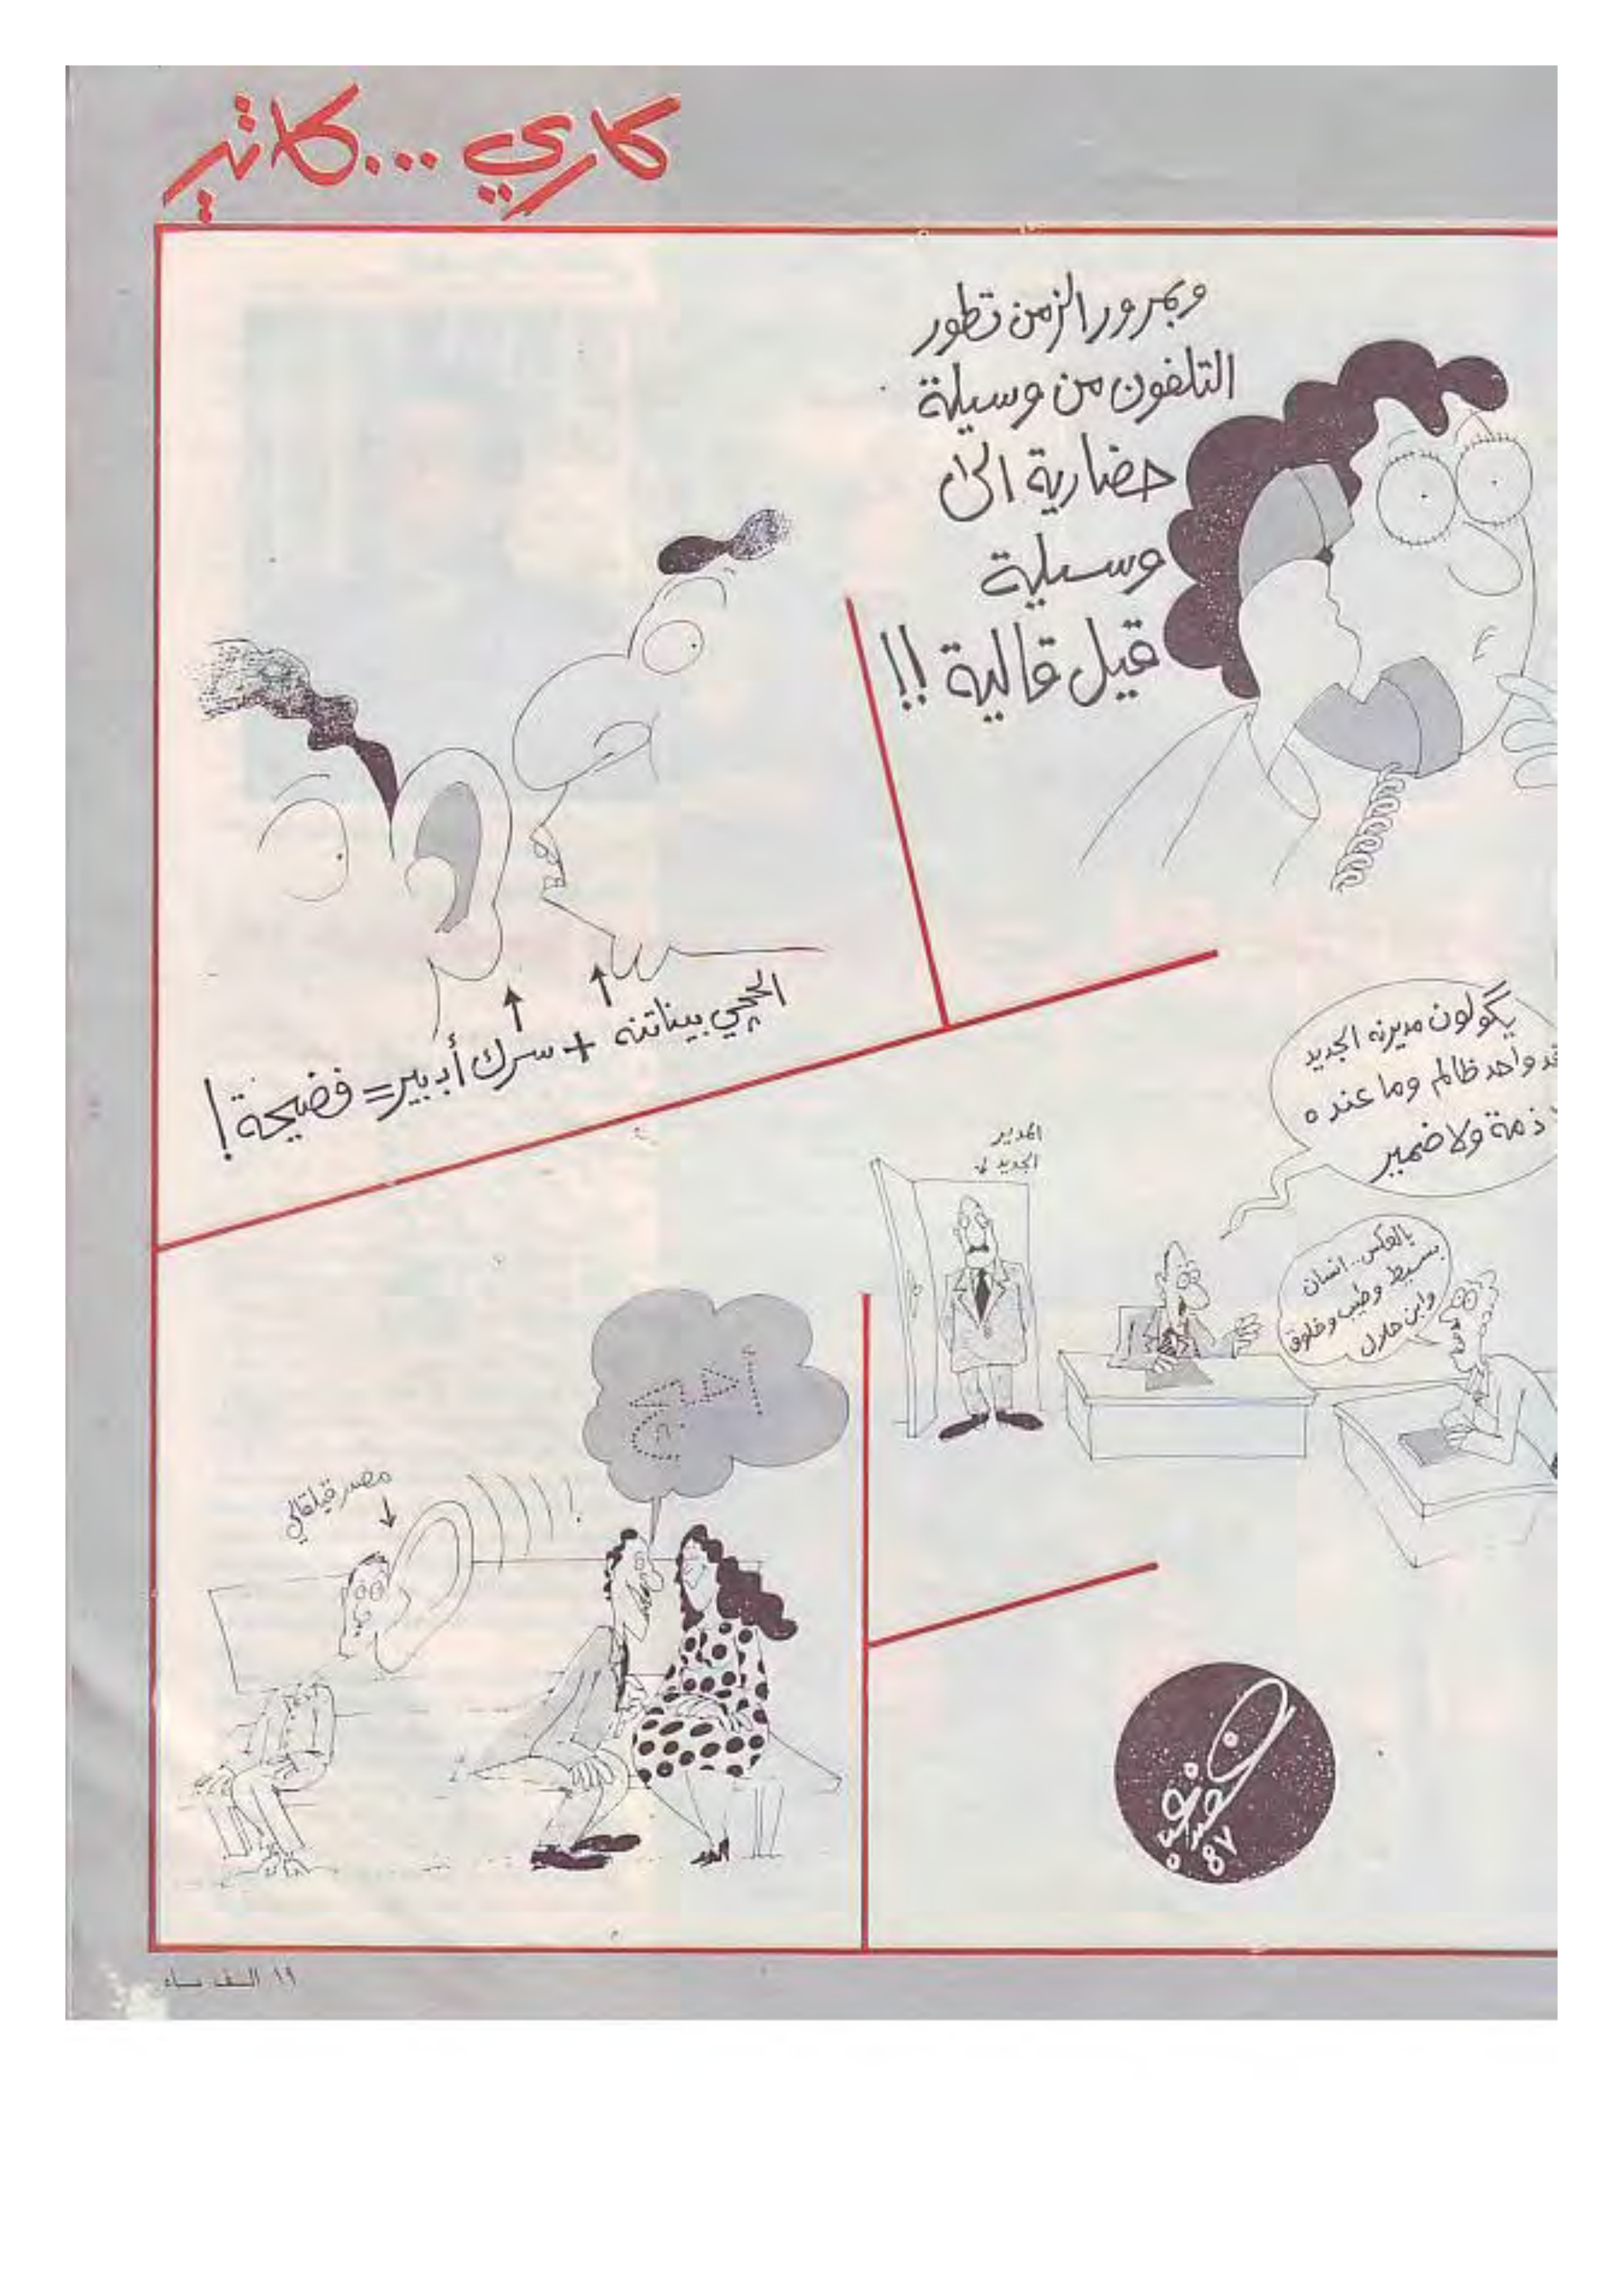 كاري ... كاتير
وبمرور الزمن تطور
التلفون من وسيلة
حضارية الى
وسيلة
قيل قالية !!
الحچي بيناتنه + سرك أببير = فضيحة !
يگولون مديرنه الجديد
واحد ظالم وما عنده
ذمة ولا ضمير
المدير
الجديد
بالعكس .. انسان
بسيط وطيب وخلوق
وابن حلال
أحبج
مصدر قيلقالي
٨٧
١٩ الف باء